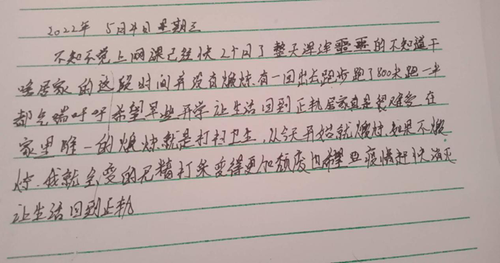 2022年 5月4日 星期三
不知不觉上网课已经快2个月了整天浑浑噩噩的不知道干
啥居家的这段时间并没有锻炼,有一回出去跑步跑了800米跑一半
都气喘吁吁希望早些开学让生活回到正轨居家真是很难受在
家里唯一的锻炼就是打扫卫生.从今天开始就锻炼如果不锻
炼.我就会变的无精打采变得更加颓废 希望疫情赶快消灭
让生活回到正轨